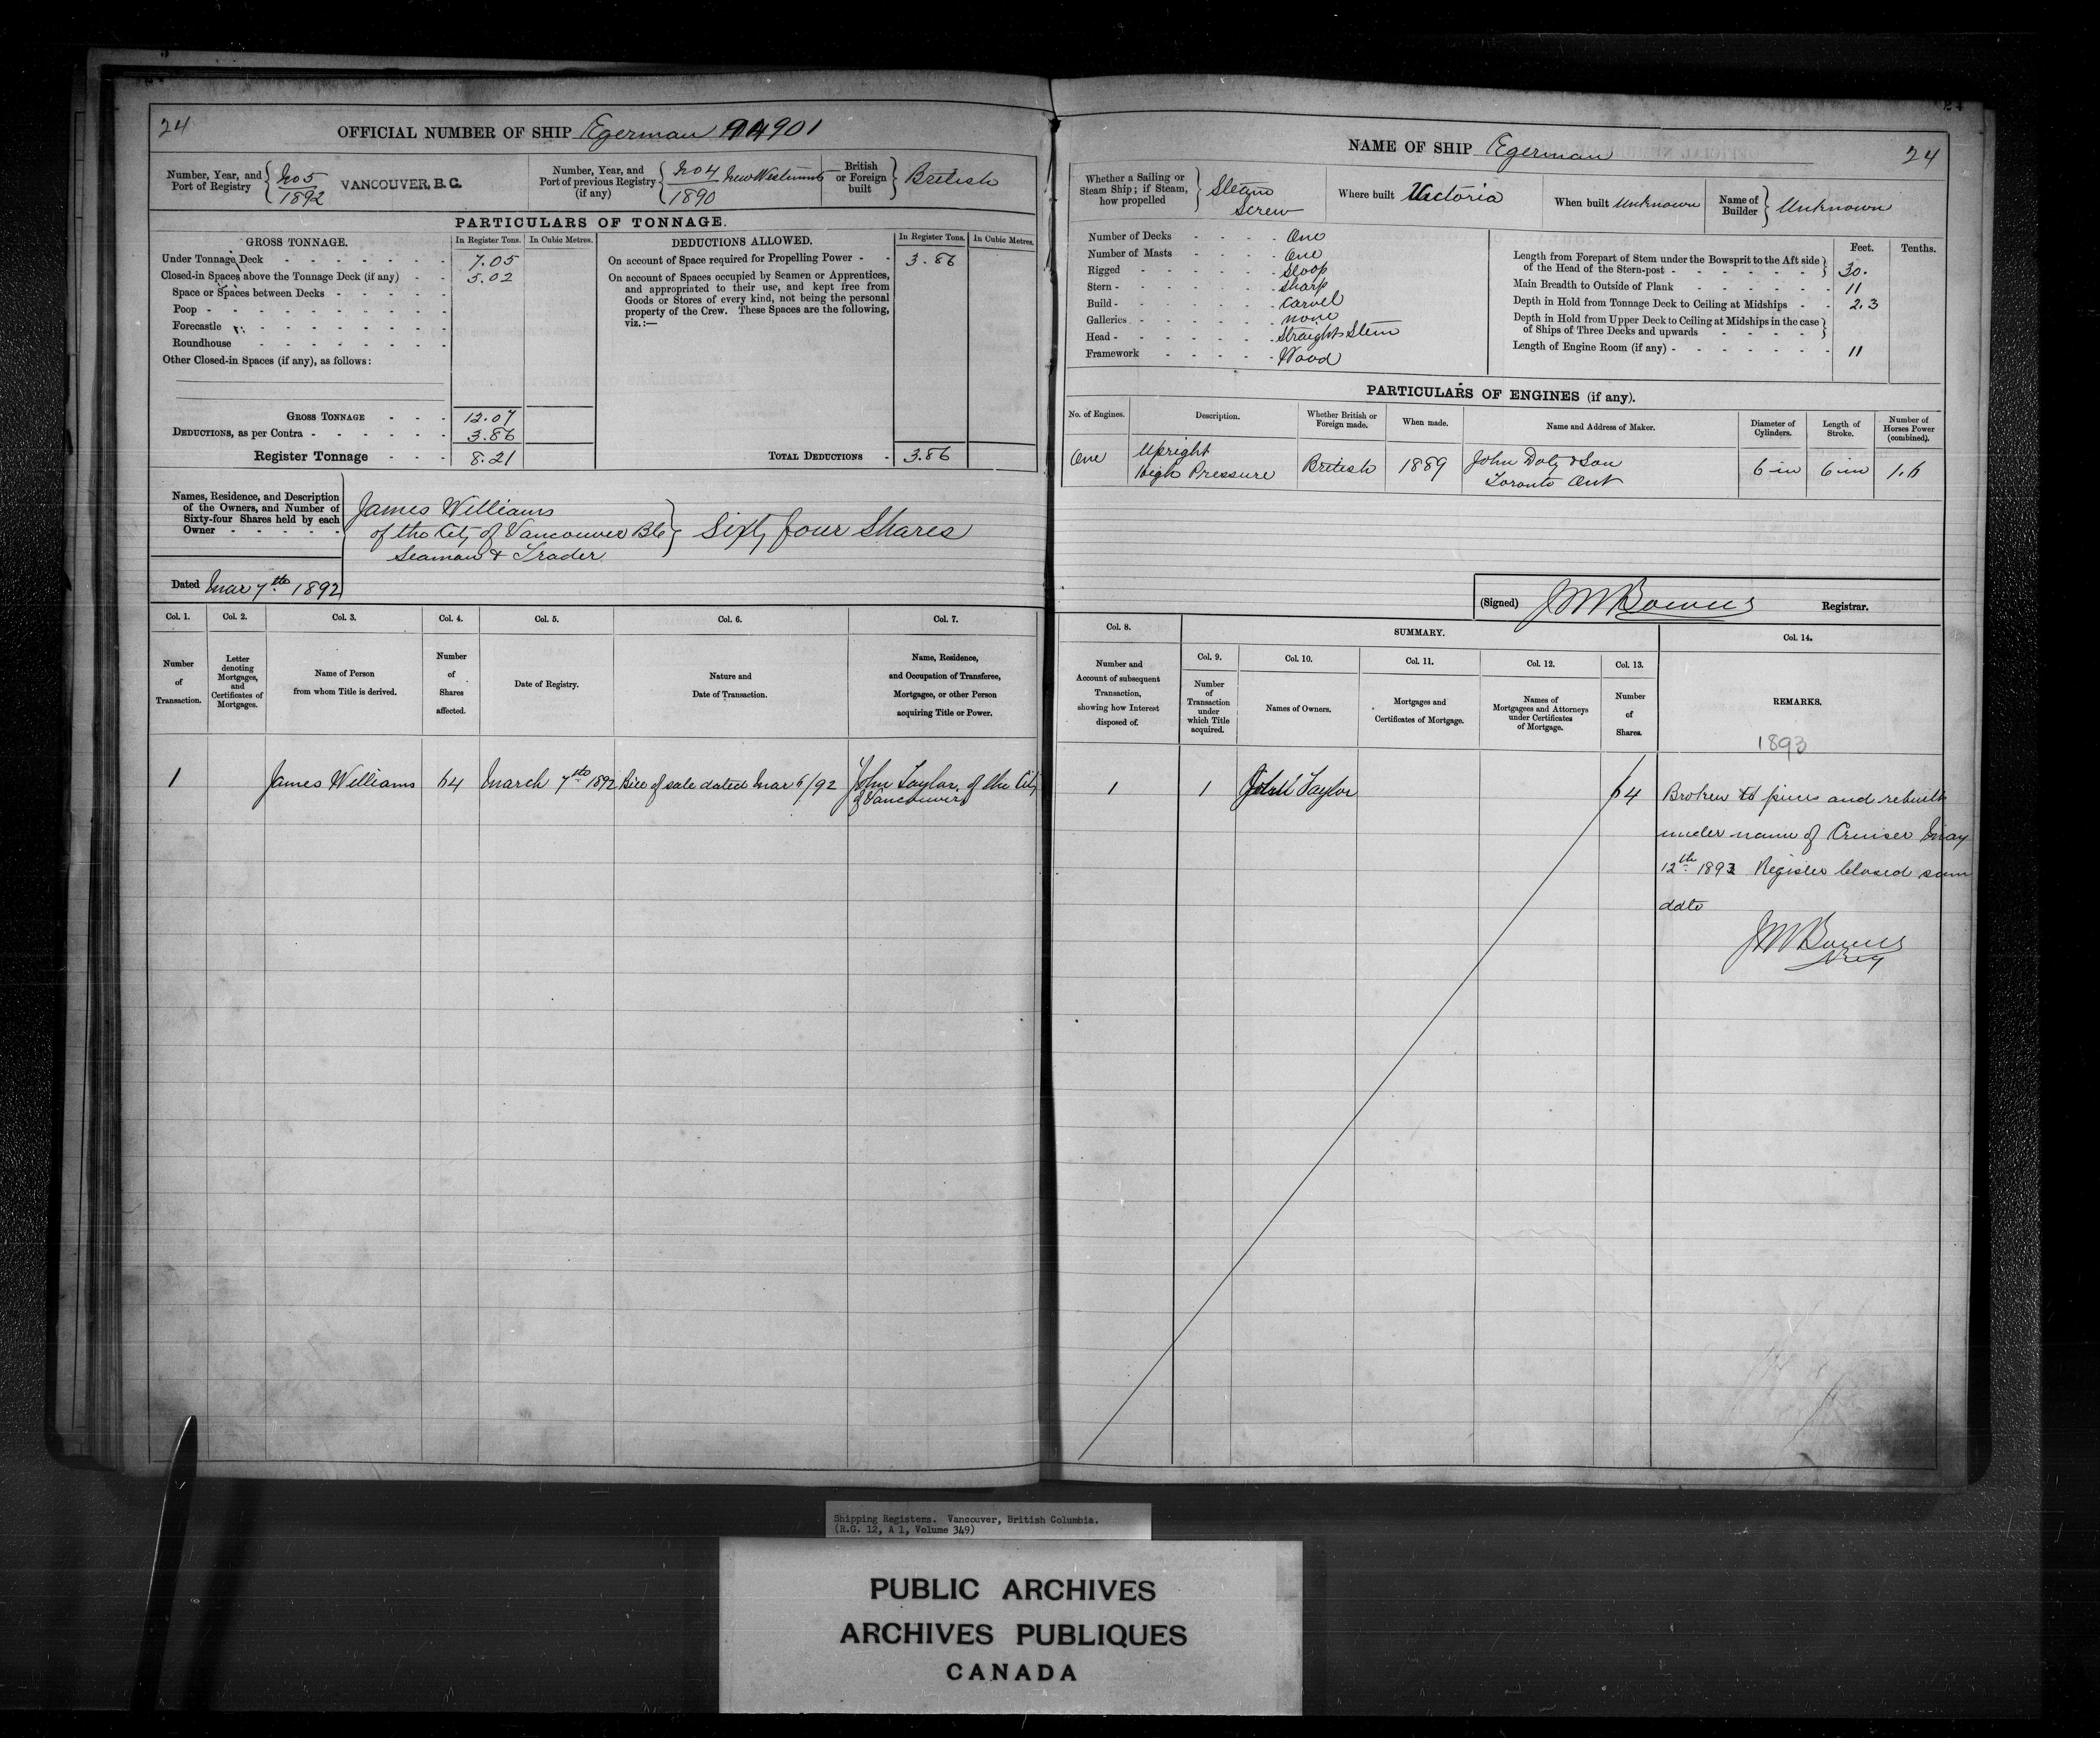 24
OFFICIAL NUMBER OF SHIP Egerman 94901
Number, Year, and Port of Registry { No 5 / 1892 VANCOUVER, B.C.
Number, Year, and Port of previous Registry (if any) { No 4 / 1890 New Westminster
British or Foreign built } British
PARTICULARS OF TONNAGE.
GROSS TONNAGE. In Register Tons. In Cubic Metres.
Under Tonnage Deck 7.05
Closed-in Spaces above the Tonnage Deck (if any) 5.02
Space or Spaces between Decks
Poop
Forecastle
Roundhouse
Other Closed-in Spaces (if any), as follows:
GROSS TONNAGE 12.07
DEDUCTIONS, as per Contra 3.86
Register Tonnage 8.21
DEDUCTIONS ALLOWED. In Register Tons. In Cubic Metres.
On account of Space required for Propelling Power 3.86
On account of Spaces occupied by Seamen or Apprentices,
and appropriated to their use, and kept free from
Goods or Stores of every kind, not being the personal
property of the Crew. These Spaces are the following,
viz.:—
TOTAL DEDUCTIONS 3.86
Names, Residence, and Description
of the Owners, and Number of
Sixty-four Shares held by each
Owner
James Williams
of the City of Vancouver BC } Sixty four Shares
Seaman & Trader
Dated Mar 7th 1892
Col. 1. Col. 2. Col. 3. Col. 4. Col. 5. Col. 6. Col. 7.
Number of Transaction.
Letter denoting Mortgages, and Certificates of Mortgages.
Name of Person from whom Title is derived.
Number of Shares affected.
Date of Registry.
Nature and Date of Transaction.
Name, Residence, and Occupation of Transferee, Mortgagee, or other Person acquiring Title or Power.
1 James Williams 64 March 7th 1892 Bill of sale dated Mar 6/92 John Taylor of the City
of Vancouver
NAME OF SHIP Egerman
24
Whether a Sailing or Steam Ship; if Steam, how propelled } Steam Screw
Where built Victoria
When built Unknown
Name of Builder } Unknown
Number of Decks One
Number of Masts One
Rigged Sloop
Stern Sharp
Build Carvel
Galleries none
Head Straight Stem
Framework Wood
Feet. Tenths.
Length from Forepart of Stem under the Bowsprit to the Aft side of the Head of the Stern-post 30.
Main Breadth to Outside of Plank 11
Depth in Hold from Tonnage Deck to Ceiling at Midships 2.3
Depth in Hold from Upper Deck to Ceiling at Midships in the case of Ships of Three Decks and upwards
Length of Engine Room (if any) 11
PARTICULARS OF ENGINES (if any).
No. of Engines. Description. Whether British or Foreign made. When made. Name and Address of Maker. Diameter of Cylinders. Length of Stroke. Number of Horses Power (combined).
One Upright High Pressure British 1889 John Doty & Son Toronto Ont 6 in 6 in 1.6
(Signed) J M Bowns Registrar.
Col. 8. SUMMARY. Col. 14.
Col. 9. Col. 10. Col. 11. Col. 12. Col. 13.
Number and Account of subsequent Transaction, showing how Interest disposed of.
Number of Transaction under which Title acquired.
Names of Owners.
Mortgages and Certificates of Mortgage.
Names of Mortgagees and Attorneys under Certificates of Mortgage.
Number of Shares.
REMARKS.
1893
1 1 John Taylor 64
Broken to pieces and rebuilt
under name of Cruiser May
12th 1893 Register closed same
date
J M Bowns
Reg
Shipping Registers. Vancouver, British Columbia.
(R.G. 12, A 1, Volume 349)
PUBLIC ARCHIVES
ARCHIVES PUBLIQUES
CANADA